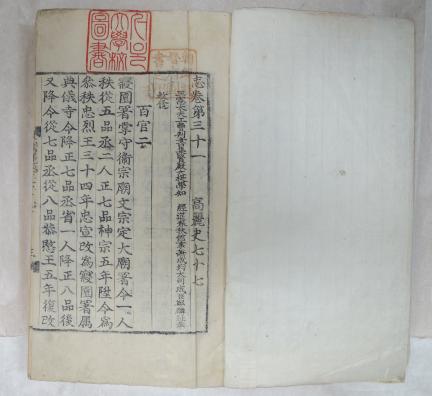 志卷第三十一 高麗史七十七
正憲大夫工曹判書集賢殿大提學知 經筵春秋館事兼成均大司成臣鄭麟趾奉
敎修
百官二
寢園署掌守衛宗廟文宗定大廟署令一人
秩從五品丞二人正七品神宗五年陞令爲
叅秩忠烈王三十四年忠宣改爲寢園署屬
典儀寺令降正七品丞省一人降正八品後
又降令從七品丞從八品恭愍王五年復改
서울
大學校
圖書